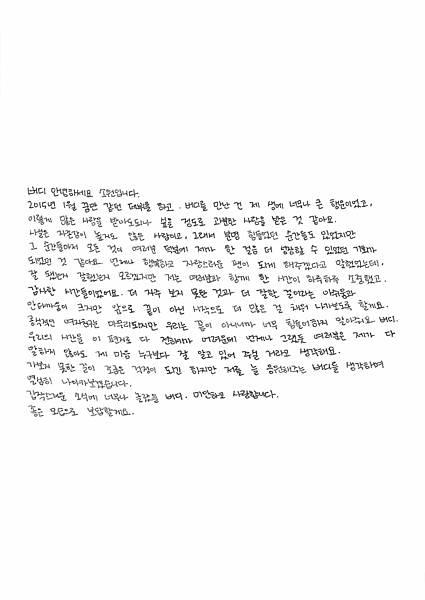 버디 안녕하세요 소원입니다.
2015년 1월 꿈만 같던 데뷔를 하고. 버디를 만난 건 제 생에 너무나 큰 행운이었고,
이렇게 많은 사랑을 받아도되나 싶을 정도로 과분한 사랑을 받은 것 같아요.
사실은 자존감이 높지도 않은 사람이고, 그래서 분명 힘들었던 순간들도 있었지만
그 순간들마저 모든 것이 여러분 덕분에 제가 한 걸음 더 성장할 수 있었던 기회가
되었던 것 같아요. 언제나 행복하고 자랑스러운 팬이 되게 해주겠다고 말했었는데,
잘 됐는지 잘했는지 모르겠지만 저는 여러분과 함께 한 시간이 하루하루 소중했고.
감사한 시간들이었어요. 더 자주 보지 못한 것과 더 잘할 걸이라는 아쉬움과
안타까움이 크지만 앞으로 끝이 아닌 시작으로 더 많은 걸 채워 나가보도록 할게요.
공식적인 여자친구는 마무리되지만 우리는 끝이 아니니까 너무 힘들어하지 말아주세요 버디.
우리의 시간들을 이 편지로 다 전하기가 어려운데 언제나 그랬듯 여러분은 제가 다
말하지 않아도 제 마음 누구보다 잘 알고 있어 주실 거라고 생각해요.
가보지 못한 길이 조금은 걱정이 되긴 하지만 저를 늘 응원해주는 버디들을 생각하며
열심히 나아가보겠습니다.
갑작스러운 소식에 너무나 놀랐을 버디. 미안하고 사랑합니다.
좋은 모습으로 보답할게요.